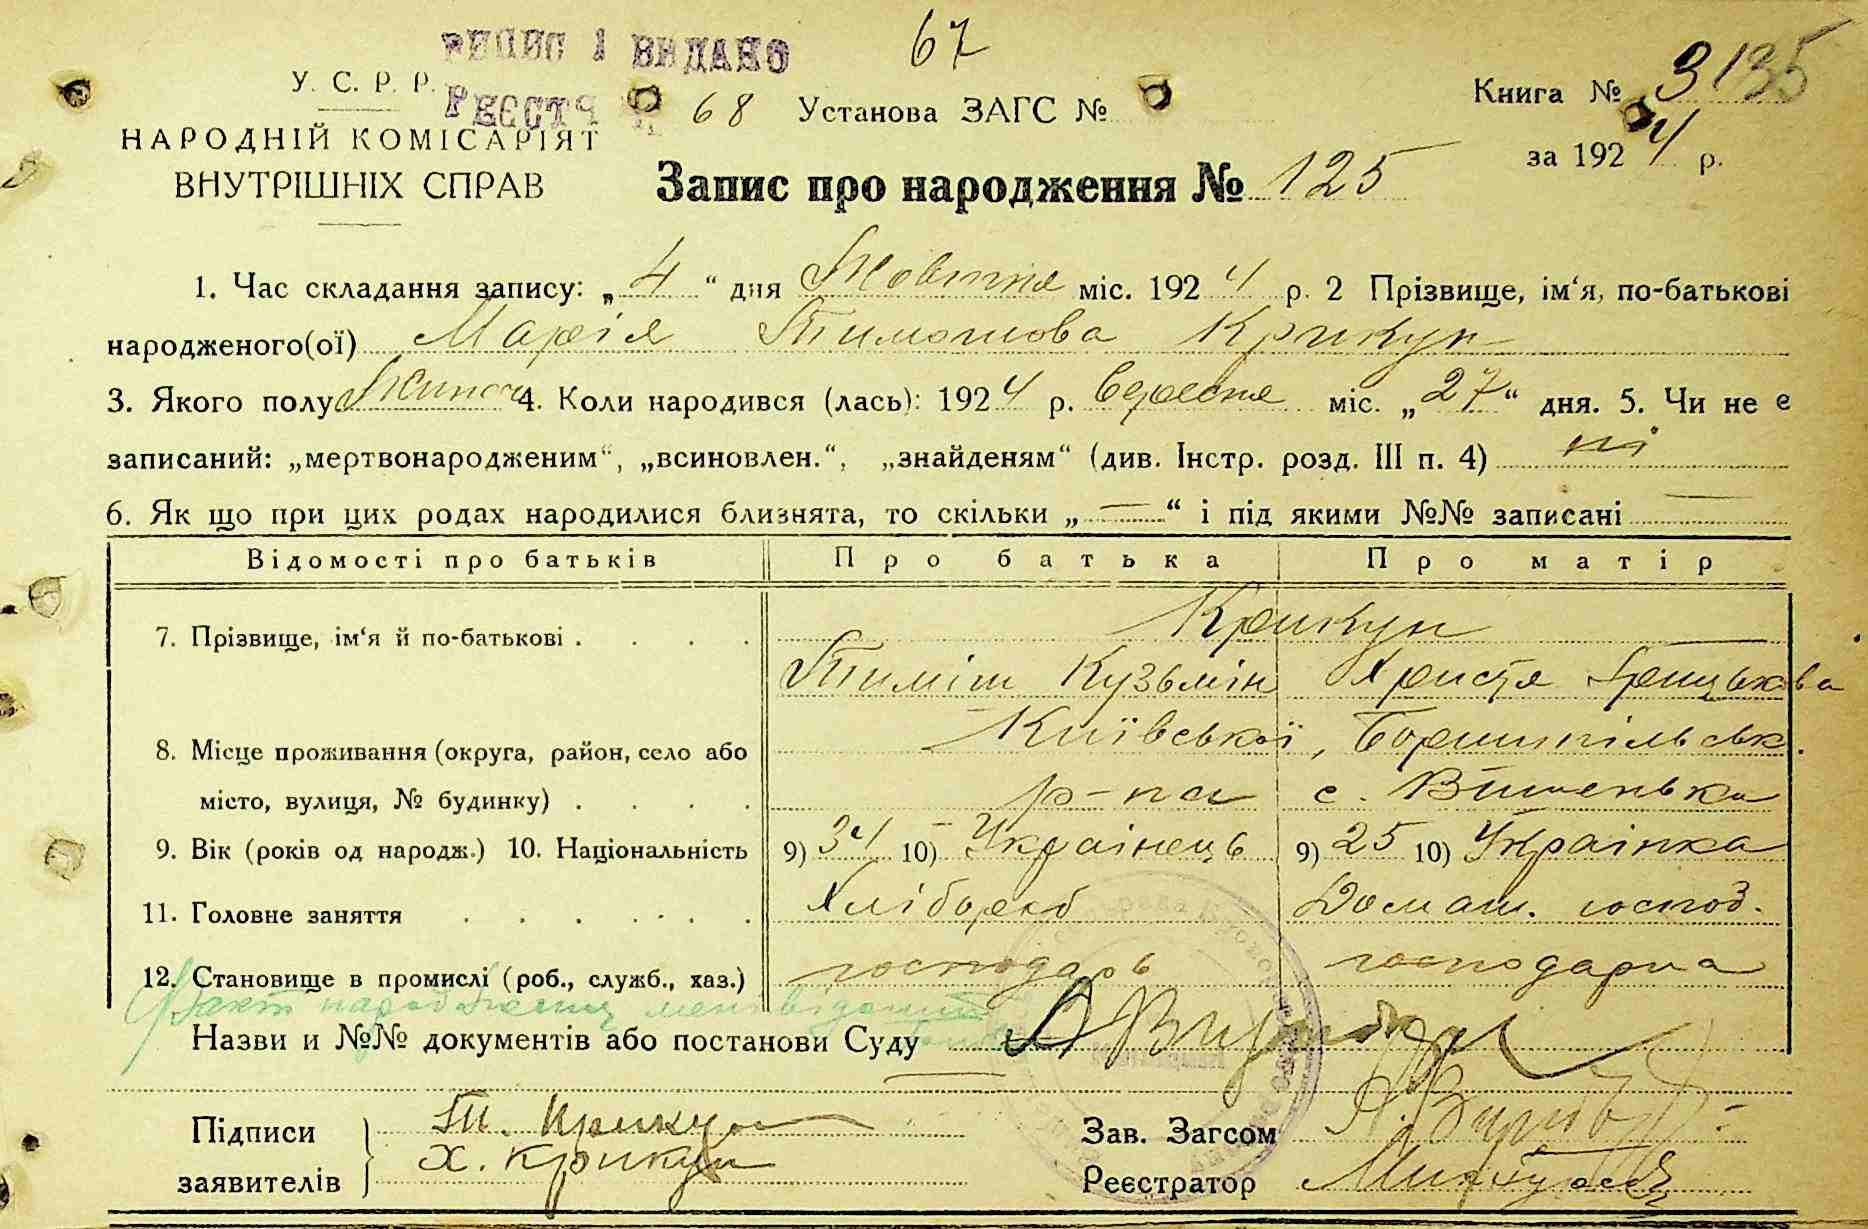 67
ВИПИС І ВИДАНО
У. С. Р. Р.
РЕЄСТР 68 Установа ЗАГС №
Книга № 3 135
НАРОДНІЙ КОМІСАРІЯТ
ВНУТРІШНІХ СПРАВ
за 1924 р.
Запис про народження № 125
1. Час складання запису: „4“ дня Жовтня міс. 1924 р. 2 Прізвище, ім‘я, по-батькові
народженого(ої) Марія Тимошова Крикун
3. Якого полу Жиноч 4. Коли народився (лась): 1924 р. Вересня міс. „27“ дня. 5. Чи не є
записаний: „мертвонародженим“, „всиновлен.“, „знайденям“ (див. Інстр. розд. III п. 4) ні
6. Як що при цих родах народилися близнята, то скільки „—“ і під якими №№ записані —
Відомості про батьків Про батька Про матір
Крикун
7. Прізвище, ім‘я й по-батькові . . . .
Тиміш Кузьмін Христя Грицькова
8. Місце проживання (округа, район, село або Київської, Бориспільськ.
місто, вулиця, № будинку) . . . . р-на с. Вишенька
9. Вік (років од народж.) 10. Національність 9) 34 10) Українець 9) 25 10) Українка
11. Головне заняття . . . . . . . Хлібороб Домаш. господ.
12. Становище в промислі (роб., служб., хаз.) господарь господарка
Факт народження
Назви и №№ документів або постанови Суду
Підписи Т. Крикун
Зав. Загсом
заявителів Х. Крикун
Реєстратор